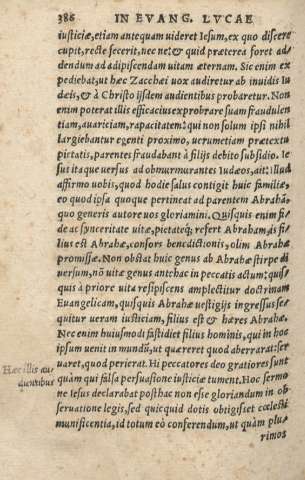 386 IN EVANG. LVCAE
iusticiæ, etiam antequam uideret Iesum, ex quo discere
cupit, recte fecerit, nec ne: & quid præterea foret ad
dendum ad adipiscendam uitam æternam. Sic enim ex
pediebat, ut hæc Zacchæi uox audiretur ab inuidis Iu
dæis, & à Christo ijsdem audientibus probaretur. Non
enim poterat illis efficacius exprobrare suam fraudulen
tiam, auariciam, rapacitatem: qui non solum ipsi nihil
largiebantur egenti proximo, uerumetiam prætextu
pietatis, parentes fraudabant à filijs debito subsidio. Ie
sus itaque uersus ad obmurmurantes Iudæos, ait: Illud
affirmo uobis, quod hodie salus contigit huic familiæ,
eo quod ipsa quoque pertineat ad parentem Abrahã,
quo generis autore uos gloriamini. Quisquis enim fi-
de ac synceritate uitæ, pietateq; refert Abraham, is fi-
lius est Abrahæ, consors benedictionis, olim Abrahæ
promissæ. Non obstat huic genus ab Abrahæ stirpe di
uersum, nõ uitæ genus antehac in peccatis actum: quis-
quis à priore uita resipiscens amplectitur doctrinam
Euangelicam, quisquis Abrahæ uestigijs ingressus se-
quitur ueram iusticiam, filius est & hæres Abrahæ.
Nec enim huiusmodi fastidiet filius hominis, qui in hoc
ipsum uenit in mundũ, ut quæreret quod aberrarat: ser
uaret, quod perierat. Hi peccatores deo gratiores sunt
Hæc illis au-
dientibus
quàm qui falsa persuasione iusticiæ tument. Hoc sermo
ne Iesus declarabat posthac non esse gloriandum in ob-
seruatione legis, sed quicquid dotis obtigisset cœlesti
munificentia, id totum eò conferendum, ut quàm plu-
rimos